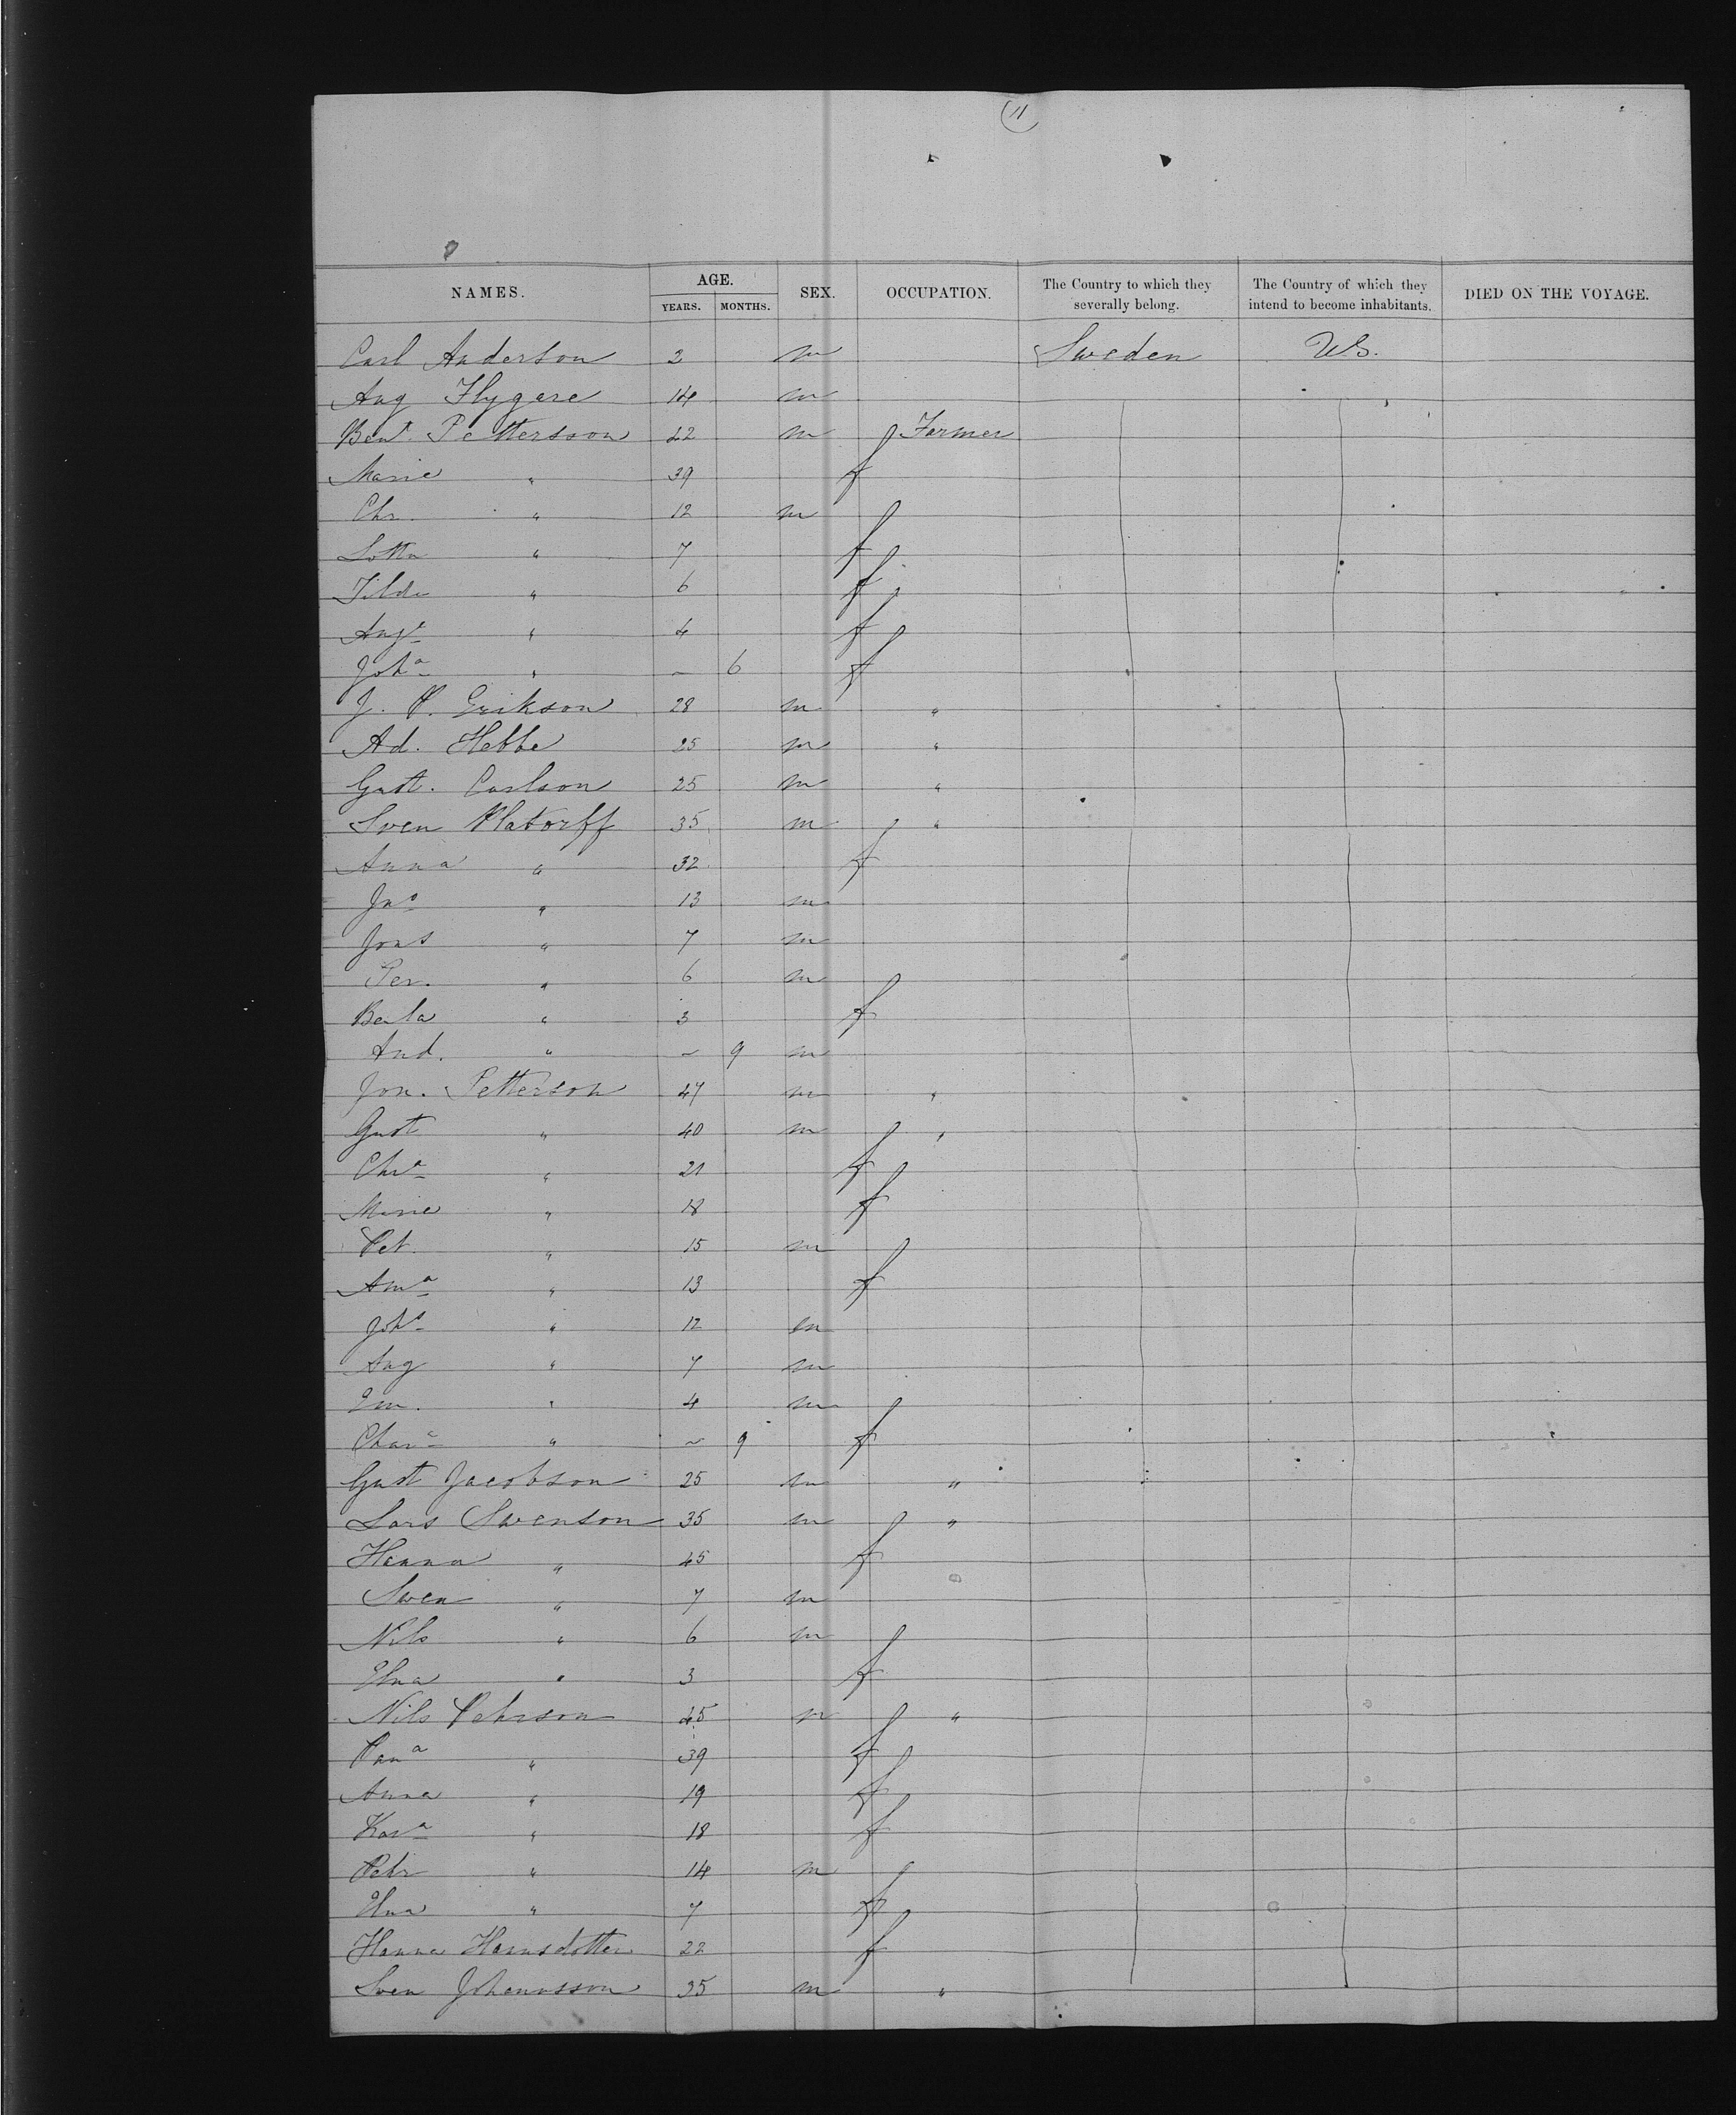 11
NAMES. AGE. YEARS. MONTHS. SEX. OCCUPATION. The Country to which they severally belong. The Country of which they intend to become inhabitants. DIED ON THE VOYAGE.
Carl Anderson 2 m Sweden US.
Aug Flygare 14 m
Bent. Pettersson 42 m Farmer
Marie " 39 f
Chr. " 12 m
Lotta " 7 f
Tilda " 6 f
Auga " 4 f
Joha " – 6 f
J. P. Erikson 28 m "
Ad. Hebbe 25 m "
Gust. Carlson 25 m "
Sven Platorff 35 m "
Anna " 32 f
Jno " 13 m
Jons " 7 m
Per. " 6 m
Berta " 3 f
And. " – 9 m
Jon. Petterson 47 m "
Gust " 40 m "
Chra " 21 f
Marie " 18 f
Pet. " 15 m
Ama " 13 f
Johs " 12 m
Aug " 7 m
Em. " 4 m
Chara " – 9 f
Gust Jacobson 25 m "
Lars Swenson 35 m "
Hanna " 45 f
Swen " 7 m
Nils " 6 m
Elna " 3 f
Nils Pehrson 45 m "
" 39 f
Anna " 19 f
Kara " 18 f
Pehr " 14 m
Elna " 7 f
Hanna Hansdotter 22 f
Sven Johannsson 35 m "